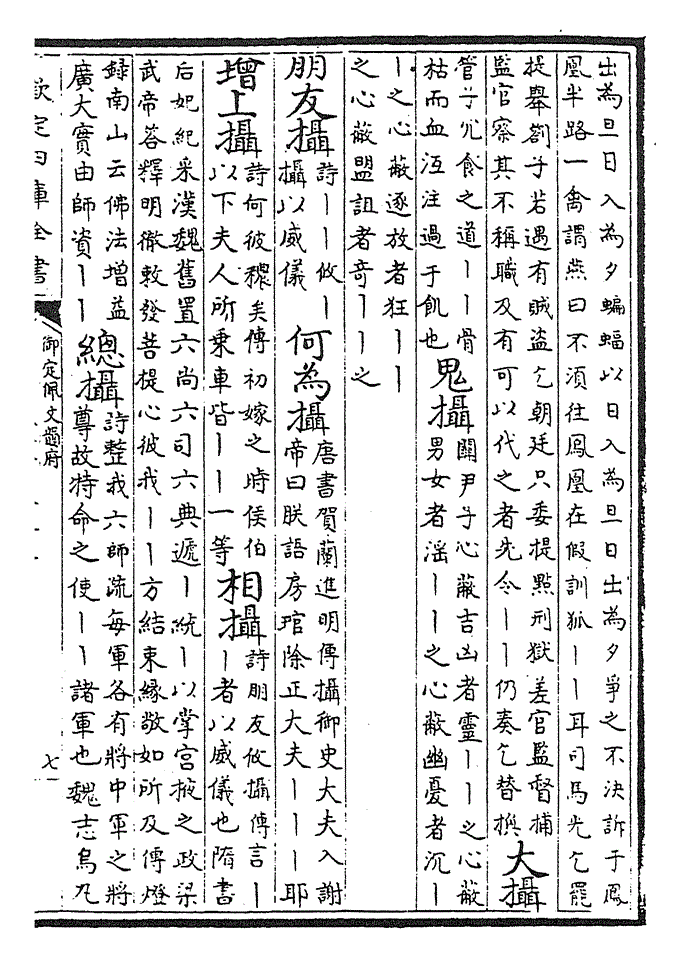 出為旦日入為夕蝙蝠以日入為旦日出為夕爭之不決訴于鳳
凰半路一禽謂燕曰不須往鳳凰在假訓狐丨丨耳司馬光乞罷
提舉劄子若遇有賊盜乞朝廷只委提點刑獄差官監督捕
監官察其不稱職及有可以代之者先令丨丨仍奏乞替換
大攝
管子凡食之道丨丨骨
枯而血沍注過于飢也
鬼攝
關尹子心蔽吉凶者靈丨丨之心蔽
男女者淫丨丨之心蔽幽憂者沉丨
丨之心蔽逐放者狂丨丨
之心蔽盟詛者奇丨丨之
朋友攝
詩丨丨攸丨
攝以威儀
何為攝
唐書賀蘭進明傳攝御史大夫入謝
帝曰朕語房琯除正大夫丨丨丨耶
增上攝
詩何彼穠矣傳初嫁之時侯伯
以下夫人所乘車皆丨丨丨一等
相攝
詩朋友攸攝傳言丨
丨者以威儀也隋書
后妃紀采漢魏舊置六尚六司六典遞丨統丨以掌宮掖之政梁
武帝答釋明徹敕發菩提心彼我丨丨方結束緣敬如所及傳燈
錄南山云佛法增益
廣大實由師資丨丨
總攝
詩整我六師疏每軍各有將中軍之將
尊故特命之使丨丨諸軍也魏志烏丸
欽定四庫全書
御定佩文韻府
七